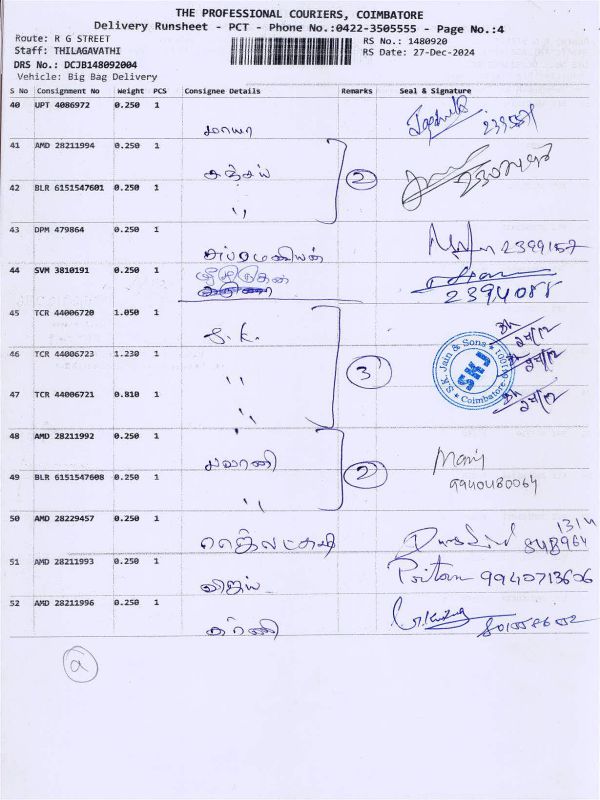 THE PROFESSIONAL COURIERS, COIMBATORE
Delivery Runsheet - PCT - Phone No.:0422-3505555 - Page No.:4
Route: R G STREET
RS No.: 1480920
Staff: THILAGAVATHI
RS Date: 27-Dec-2024
DRS No.: DCJB148092004
Vehicle: Big Bag Delivery
S No Consignment No Weight PCS Consignee Details Remarks Seal & Signature
40 UPT 4086972 0.250 1
மாயா
41 AMD 28211994 0.250 1
சஞ்சய்
2
42 BLR 6151547601 0.250 1
"
43 DPM 479864 0.250 1
சுப்ரமணியன் 2399157
44 SVM 3810191 0.250 1
2394088
45 TCR 44006720 1.050 1
S.K.
46 TCR 44006723 1.230 1
"
3
S.K. Jain & Sons
SKJ
Coimbatore
47 TCR 44006721 0.810 1
"
48 AMD 28211992 0.250 1
Mani
2
49 BLR 6151547608 0.250 1
9940480064
"
50 AMD 28229457 0.250 1
51 AMD 28211993 0.250 1
9940713606
விஜய்
52 AMD 28211996 0.250 1
a